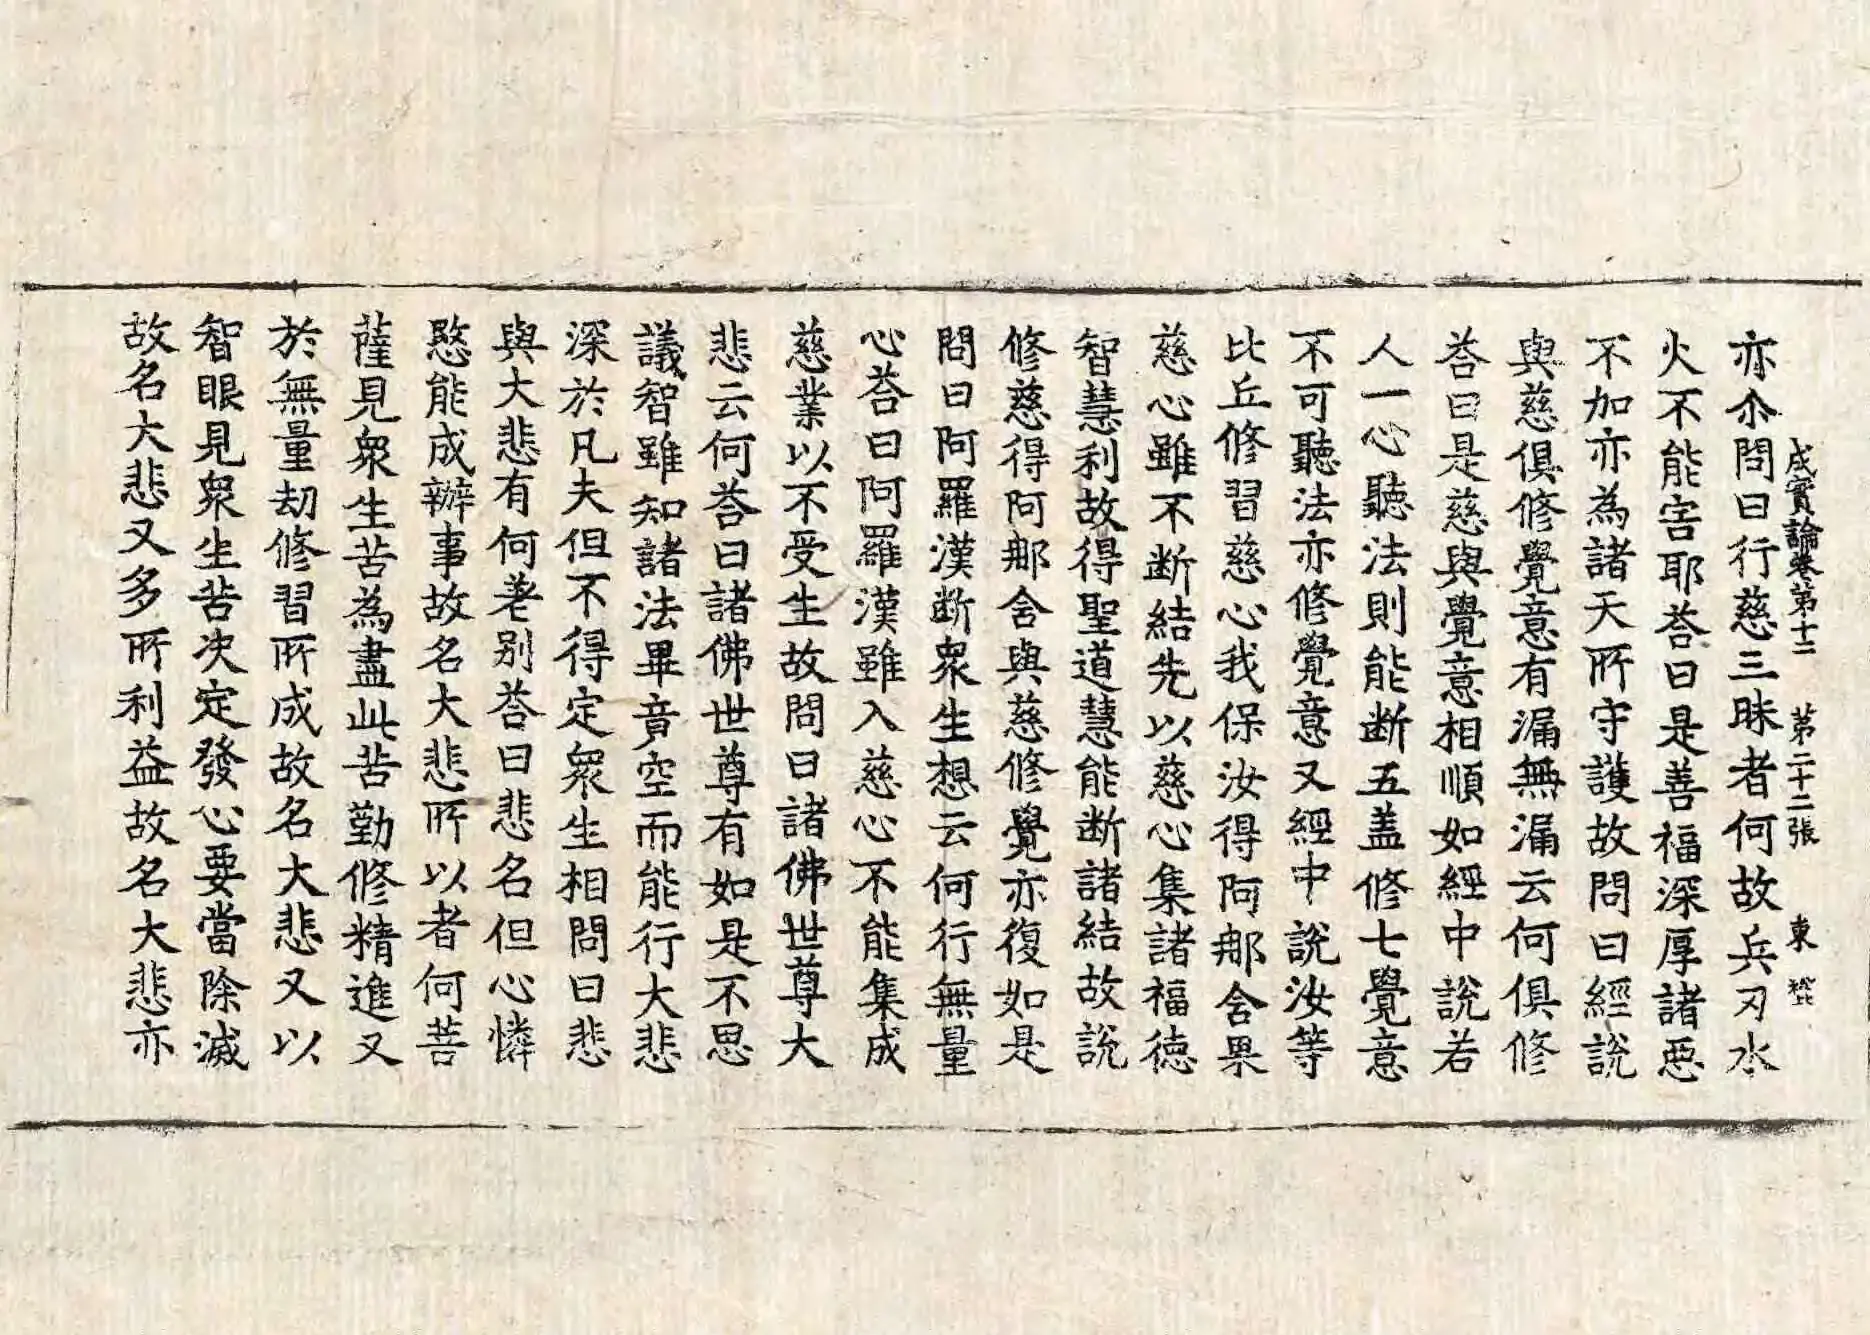 成實論卷第十二　第二十二張　東
亦尒問曰行慈三昧者何故兵刃水
火不能害耶荅曰是善福深厚諸惡
不加亦為諸天所守護故問曰經說
與慈俱修覺意有漏無漏云何俱修
荅曰是慈與覺意相順如經中說若
人一心聽法則能断五盖修七覺意
不可聽法亦修覺意又經中說汝等
比丘修習慈心我保汝得阿那舍果
慈心雖不断結先以慈心集諸福德
智慧利故得聖道慧能断諸結故說
修慈得阿那舍與慈修覺亦復如是
問曰阿羅漢断衆生想云何行無量
心荅曰阿羅漢雖入慈心不能集成
慈業以不受生故問曰諸佛世尊大
悲云何荅曰諸佛世尊有如是不思
議智雖知諸法畢竟空而能行大悲
深於凡夫但不得定衆生相問曰悲
與大悲有何差别荅曰悲名但心憐
愍能成辦事故名大悲所以者何菩
薩見衆生苦為盡此苦勤修精進又
於無量劫修習所成故名大悲又以
智眼見衆生苦决定發心要當除滅
故名大悲又多所利益故名大悲亦